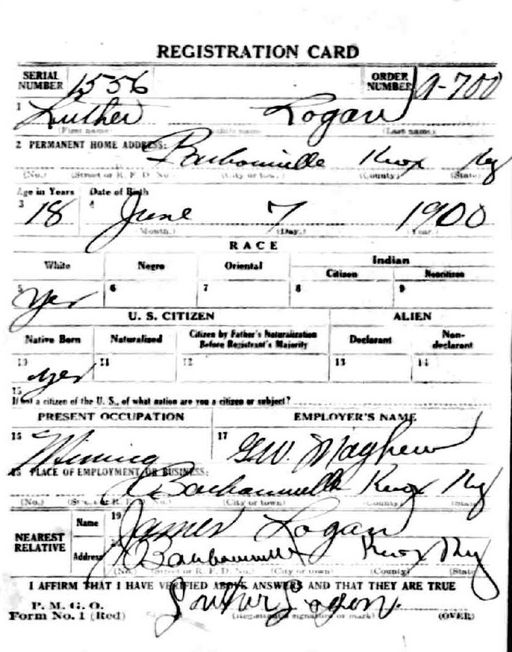 REGISTRATION CARD
SERIAL NUMBER 1556 ORDER NUMBER A-700
1 Luther Logan
(First name) (Middle name) (Last name)
2 PERMANENT HOME ADDRESS: Barbourville Knox Ky
(No.) (Street or R. F. D. No.) (City or town) (County) (State)
Age in Years Date of Birth
3 18 4 June 7 1900
(Month.) (Day.) (Year.)
RACE
White Negro Oriental Indian
Citizen Noncitizen
5 Yes 6 7 8 9
U. S. CITIZEN ALIEN
Native Born Naturalized Citizen by Father's Naturalization Before Registrant's Majority Declarant Non-declarant
10 yes 11 12 13 14
15 If not a citizen of the U. S., of what nation are you a citizen or subject?
PRESENT OCCUPATION EMPLOYER'S NAME
16 Mining 17 G.W. Mayhew
18 PLACE OF EMPLOYMENT OR BUSINESS:
Barbourville Knox Ky
(No.) (Street or R. F. D. No.) (City or town) (County) (State)
NEAREST RELATIVE Name 19 James Logan
Address Barbourville Knox Ky
(No.) (Street or R. F. D. No.) (City or town) (County) (State)
I AFFIRM THAT I HAVE VERIFIED ABOVE ANSWERS AND THAT THEY ARE TRUE
P. M. G. O.
Form No. 1 (Red) Luther Logan. (OVER)
(Registrant's signature or mark)